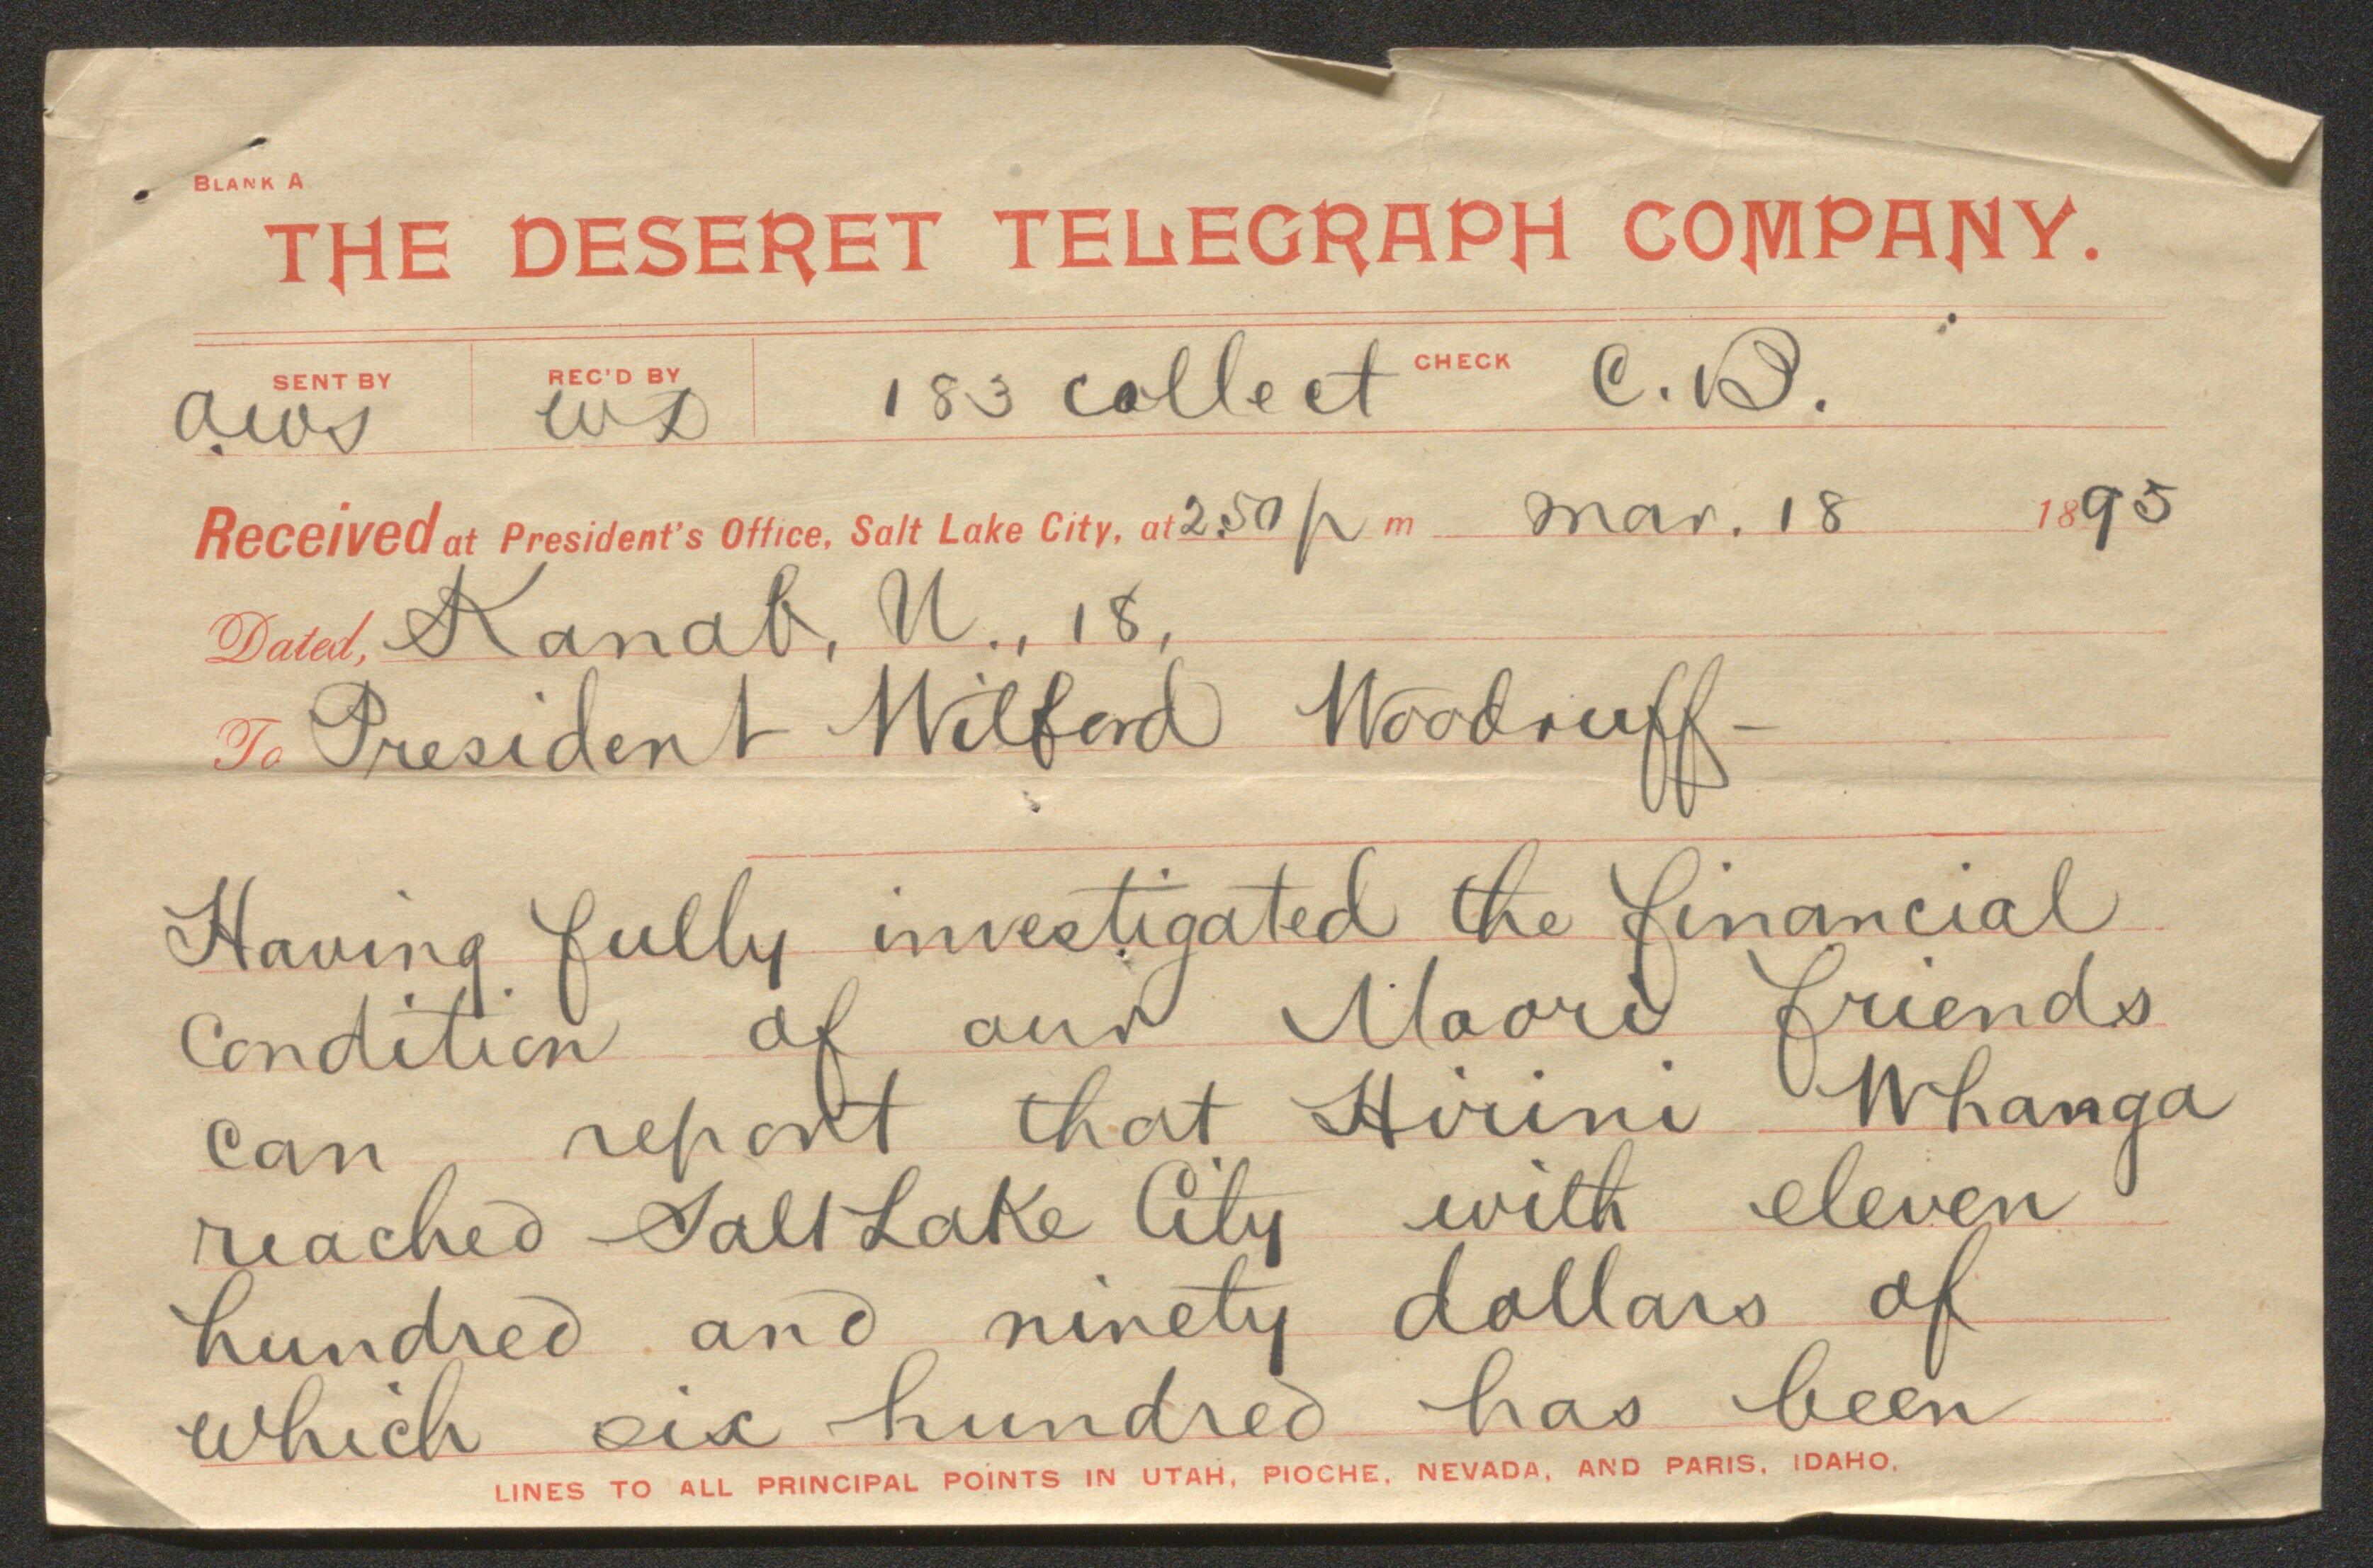 BLANK A
THE DESERET TELEGRAPH COMPANY.
SENT BY REC'D BY CHECK
aws 183 collect C.B.
Received at President's Office, Salt Lake City, at 2.50 p m Mar. 18 1895
Dated, Kanab, U., 18,
To President Wilford Woodruff-
Having fully investigated the financial
Condition of our Maori friends
can report that Hirini Whanga
reached Salt Lake City with eleven
hundred and ninety dollars of
which six hundred has been
LINES TO ALL PRINCIPAL POINTS IN UTAH, PIOCHE, NEVADA, AND PARIS, IDAHO.